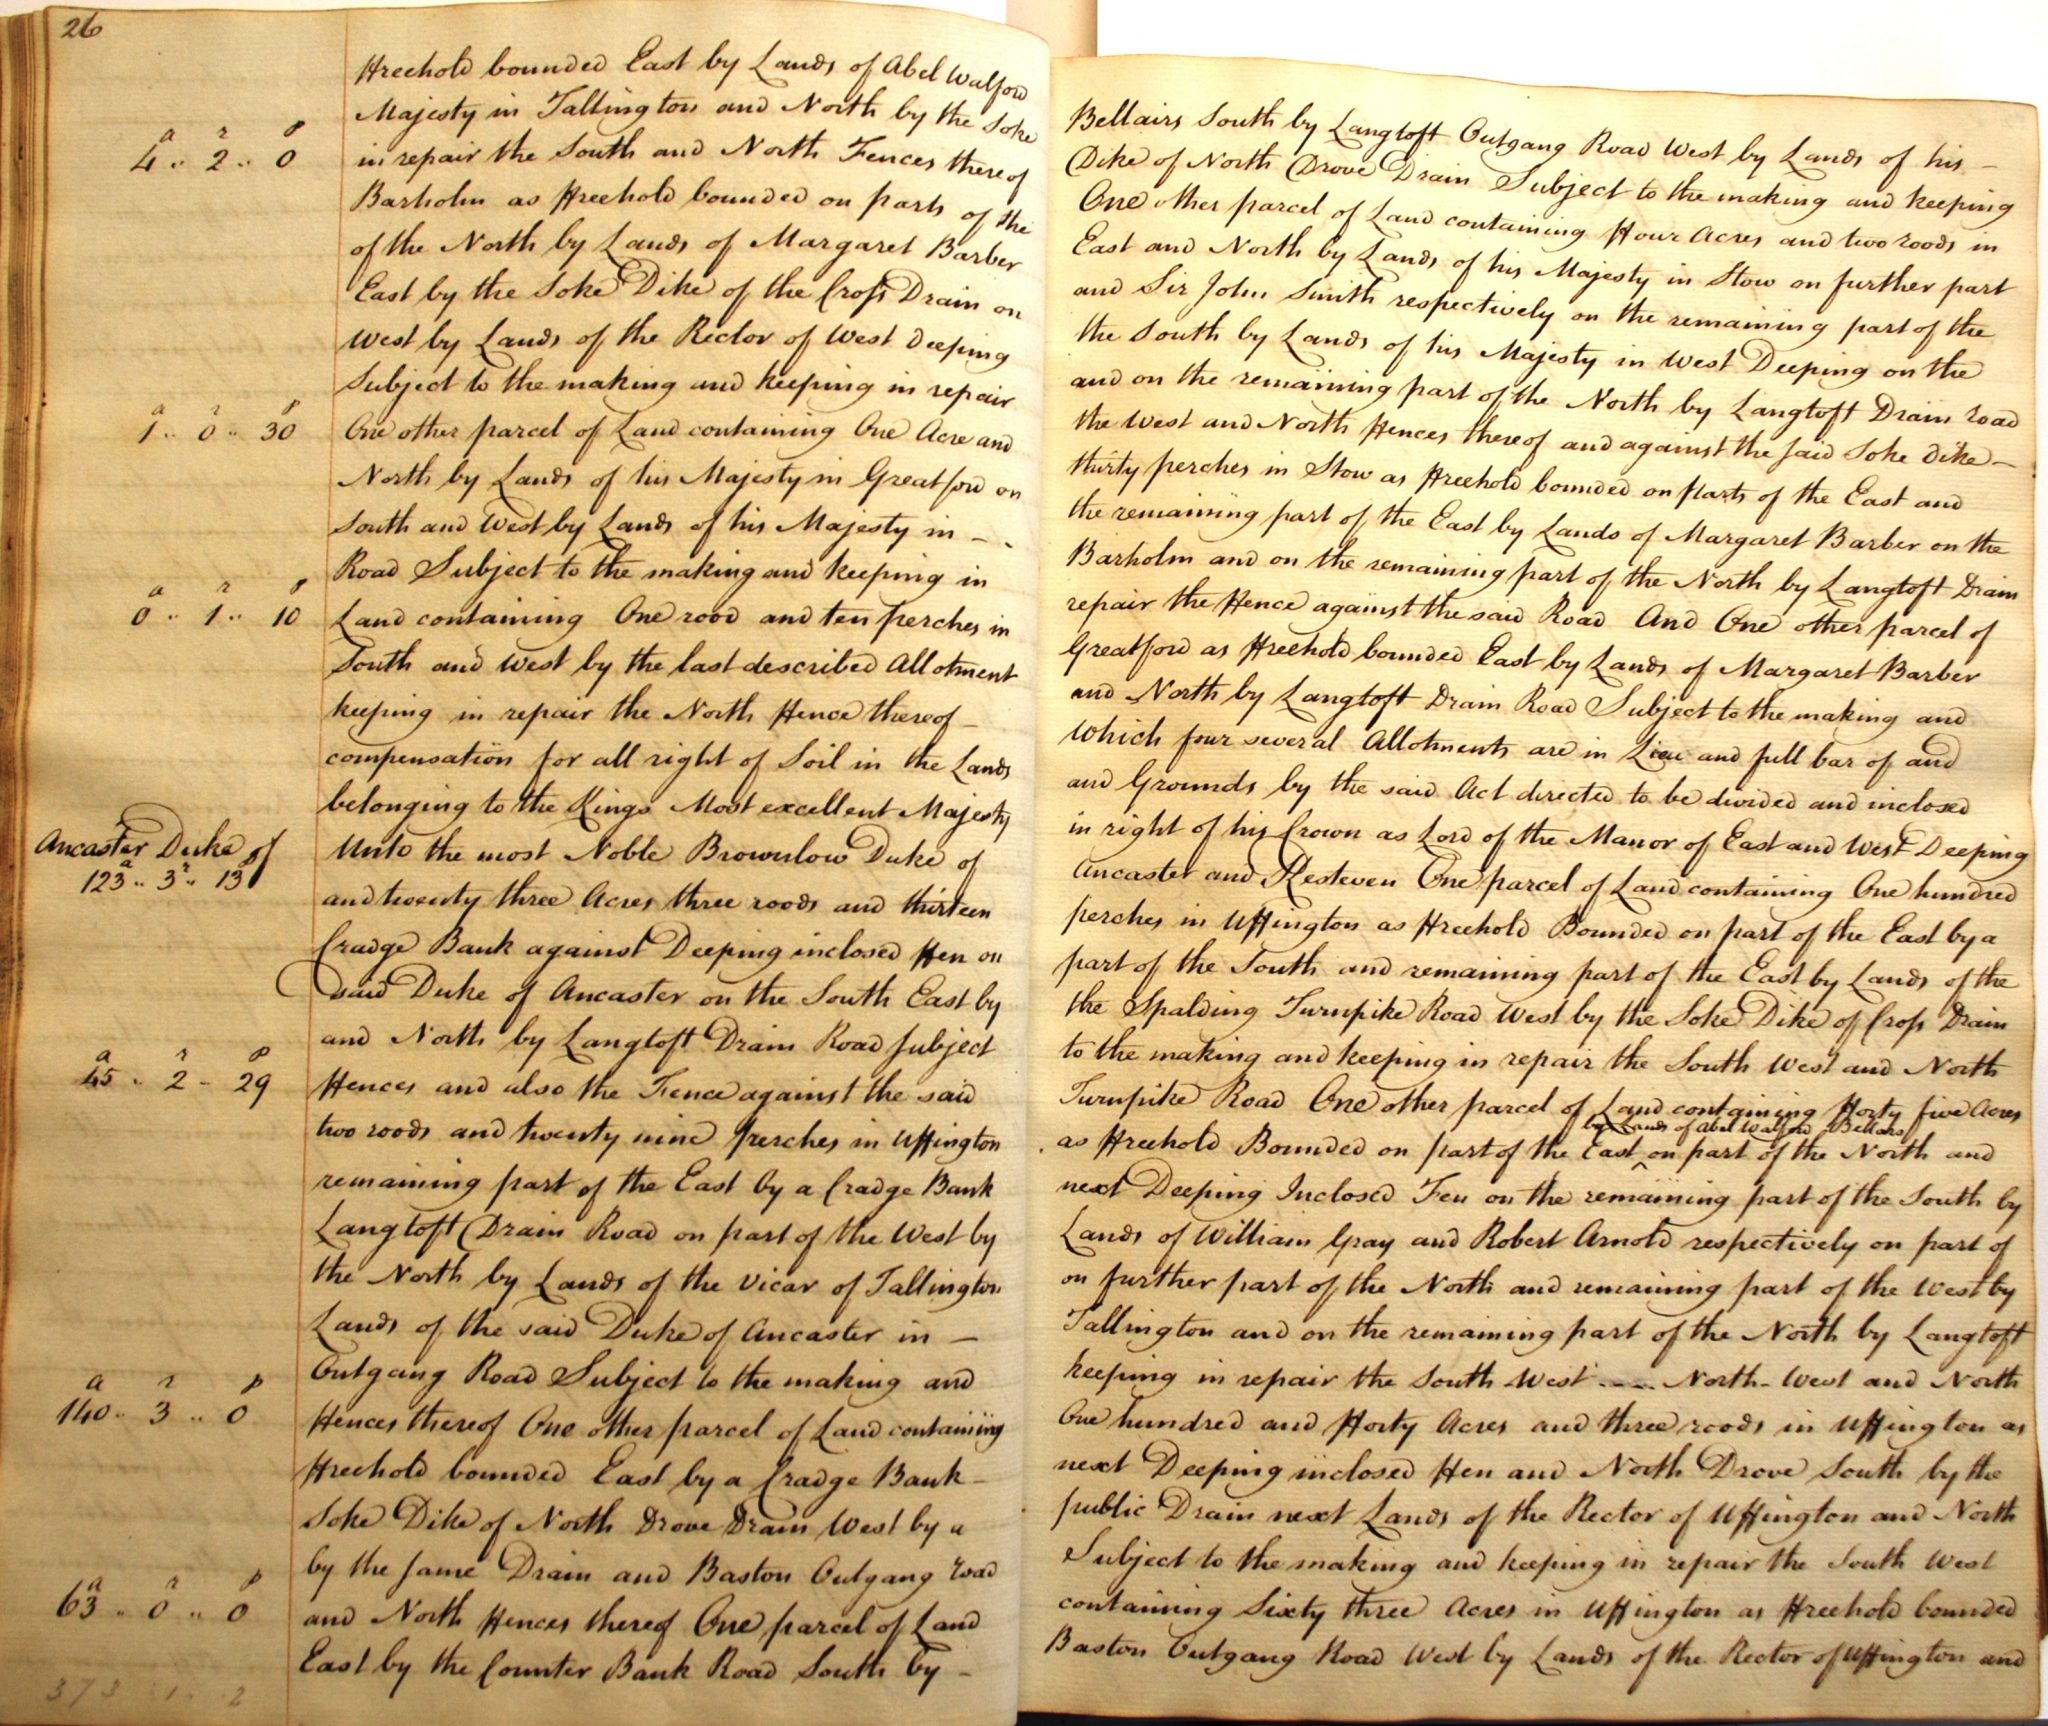 26
ffreehold bounded East by Lands of Abel Walford Bellairs South by Langtoft Outgang Road West by Lands of his –
Majesty in Tallington and North by the Soke Dike of North Drove Drain Subject to the making and keeping
a r p
4 .. 2 .. 0 in repair the South and North Fences thereof One other parcel of Land containing ffour Acres and two roods in
Barholm as ffreehold bounded on parts of the East and North by Lands of his Majesty in Stow on further part
of the North by Lands of Margaret Barber and Sir John Smith respectively on the remaining part of the
East by the Soke Dike of the Cross Drain on the South by Lands of his Majesty in West Deeping on the
West by Lands of the Rector of West Deeping and on the remaining part of the North by Langtoft Drain road
Subject to the making and keeping in repair the West and North ffences thereof and against the said Soke Dike –
a r p
1 .. 0 .. 30 One other parcel of Land containing One Acre and thirty perches in Stow as ffreehold bounded on parts of the East and
North by Lands of his Majesty in Greatford on the remaining part of the East by Lands of Margaret Barber on the
South and West by Lands of his Majesty in – - Barholm and on the remaining part of the North by Langtoft Drain
Road Subject to the making and keeping in repair the ffence against the said Road And One other parcel of
a r p
0 .. 1 .. 10 Land containing One rood and ten perches in Greatford as ffreehold bounded East by Lands of Margaret Barber
South and West by the last described Allotment and North by Langtoft Drain Road Subject to the making and
keeping in repair the North ffence thereof – Which four several Allotments are in Lieu and full bar of and
compensation for all right of Soil in the Lands and Grounds by the said Act directed to be divided and inclosed
belonging to the Kings Most excellent Majesty in right of his Crown as Lord of the Manor of East and West Deeping
Ancaster Duke of Unto the most Noble Brownlow Duke of Ancaster and Kesteven One parcel of Land containing One hundred
a r p
123 .. 3 .. 13 and twenty three Acres three roods and thirteen perches in Uffington as ffreehold Bounded on part of the East by a
Cradge Bank against Deeping inclosed ffen on part of the South and remaining part of the East by Lands of the
said Duke of Ancaster on the South East by the Spalding Turnpike Road West by the Soke Dike of Cross Drain
and North by Langtoft Drain Road subject to the making and keeping in repair the South West and North
a r p
45 .. 2 - 29 ffences and also the Fence against the said Turnpike Road One other parcel of Land containing fforty five Acres
by Lands of Abel Walford Bellars
two roods and twenty nine perches in Uffington as ffreehold Bounded on part of the East ^ on part of the North and
remaining part of the East by a Cradge Bank next Deeping Inclosed Fen on the remaining part of the South by
Langtoft Drain Road on part of the West by Lands of William Gray and Robert Arnold respectively on part of
the North by Lands of the Vicar of Tallington on further part of the North and remaining part of the West by
Lands of the said Duke of Ancaster in – Tallington and on the remaining part of the North by Langtoft
Outgang Road Subject to the making and keeping in repair the South West - - - - North-West and North
a r p
140 .. 3 .. 0 ffences thereof One other parcel of Land containing One hundred and fforty Acres and three roods in Uffington as
ffreehold bounded East by a Cradge Bank – next Deeping inclosed ffen and North Drove South by the
Soke Dike of North Drove Drain West by a public Drain next Lands of the Rector of Uffington and North
by the same Drain and Baston Outgang road Subject to the making and keeping in repair the South West
a r p
63 .. 0 .. 0 and North ffences thereof One parcel of Land containing Sixty three Acres in Uffington as ffreehold bounded
East by the Counter Bank Road South by – Baston Outgang Road West by Lands of the Rector of Uffington and
373 .. 1 .. 2